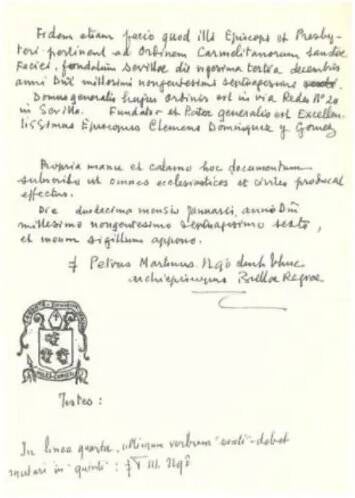 Fidem etiam facio quod illi Episcopi et Presby-
teri pertinent ad Ordinem Carmelitanorum Sanctae
Faciei, fondatum Sevillae die vigesima tertia decembris
anni Dni millesimi nongentesimi septuagesimo sexti.
Domus generalis hujus Ordinis est in via Redes Nº 20
in Sevilla. Fundator et Pater generalis est Excellen-
tissimus Episcopus Clemens Dominguez y Gomez
Propria manu et calamo hoc documentum
subscribo ut omnes ecclesiasticos et civiles producat
effectus.
Die duodecima mensis Januarii, anno Dni
millesimo nongentesimo septuagesimo sexto,
et meum sigillum appono.
† Petrus Martinus Ngô dinh Thuc
Archiepiscopus Bullae Regiae
Testes:
In linea quarta, ultimum verbum "sexti" debet
mutari in "quinti": † P. M. Ngô